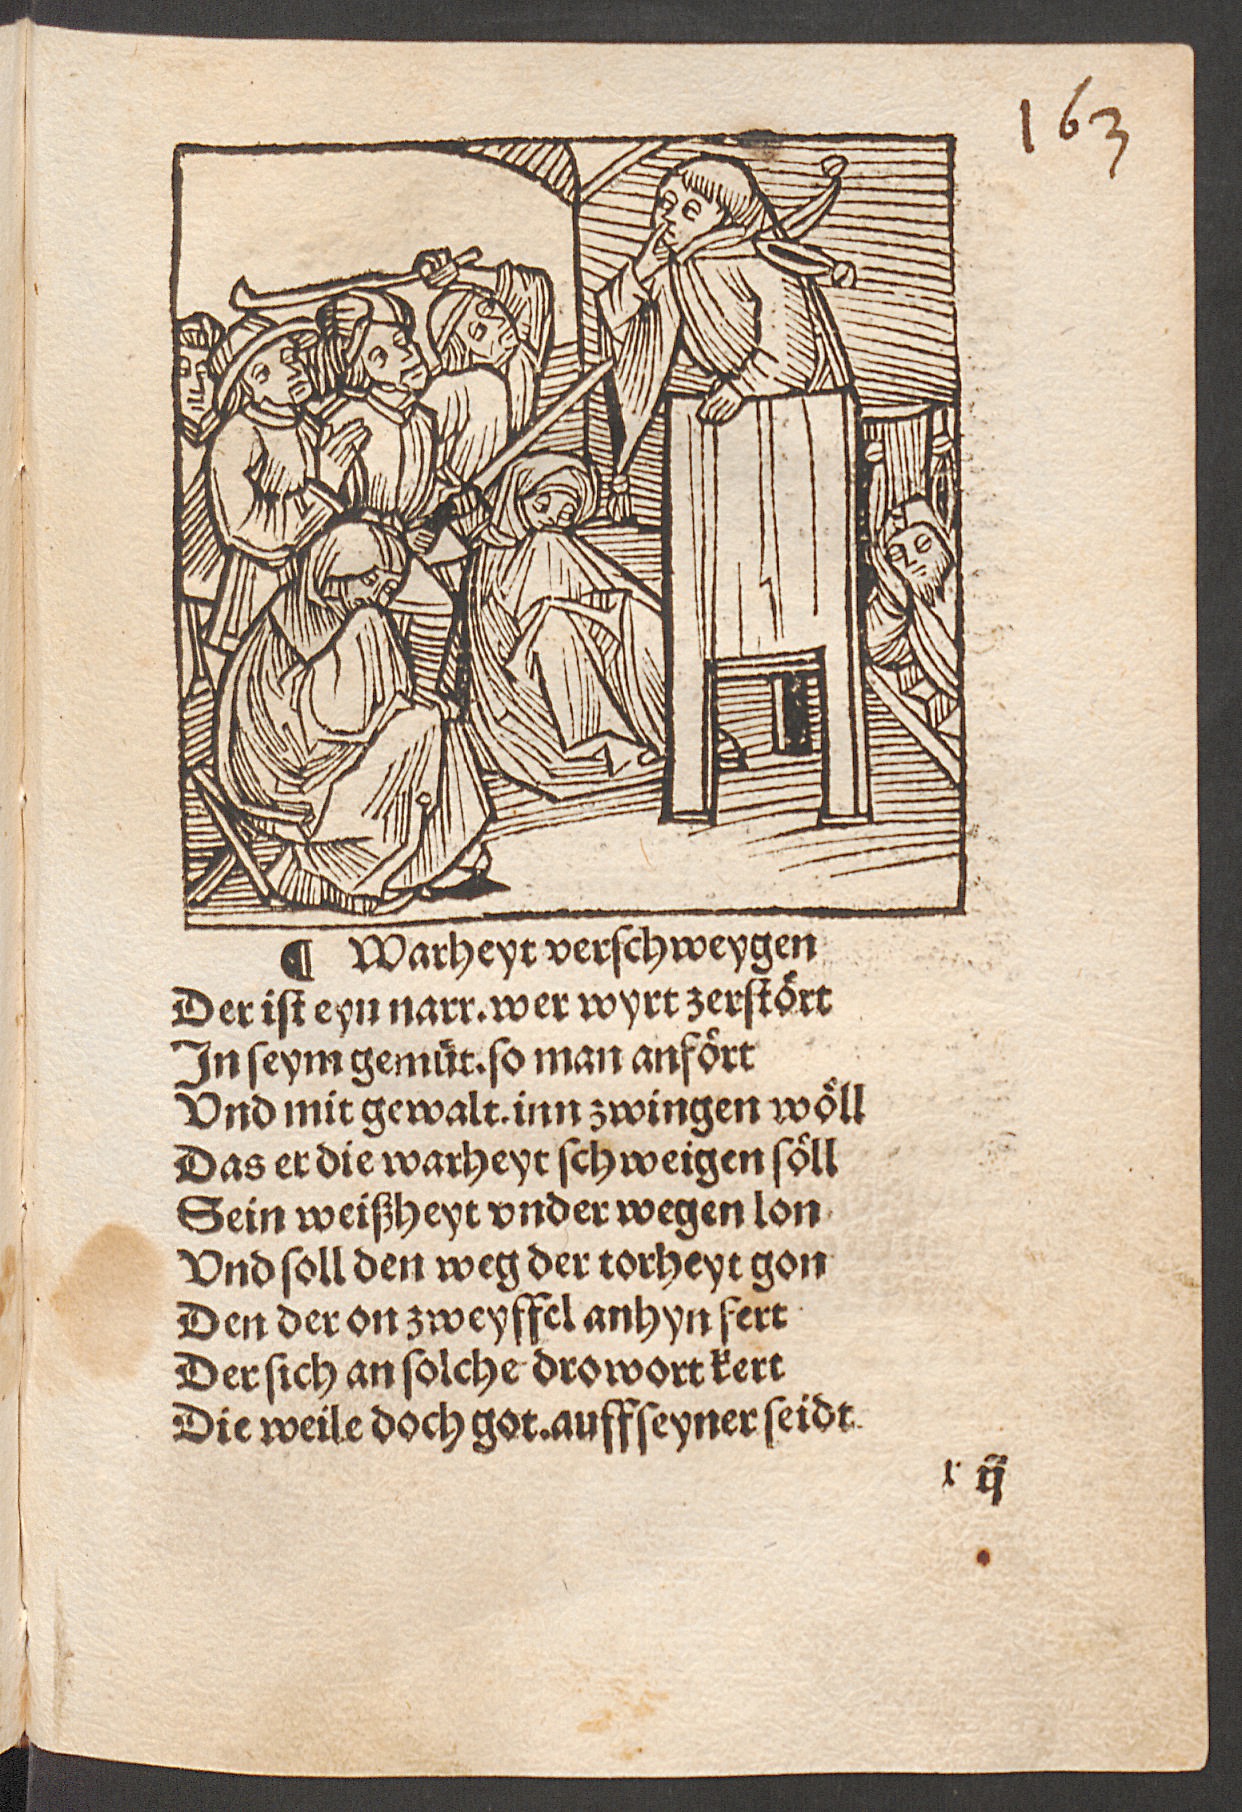 163
¶ Warheyt verschweygen
Der ist eyn narr. wer wyrt zerstoͤrt
Jn seym gemuͤt. so man anfoͤrt
Vnd mit gewalt. inn zwingen woͤll
Das er die warheyt schweigen soͤll
Sein weißheyt vnder wegen lon
Vnd soll den weg der torheyt gon
Den der on zweyffel anhyn fert
Der sich an solche drowort kert
Die weile doch got. auff seyner seidt
x ij